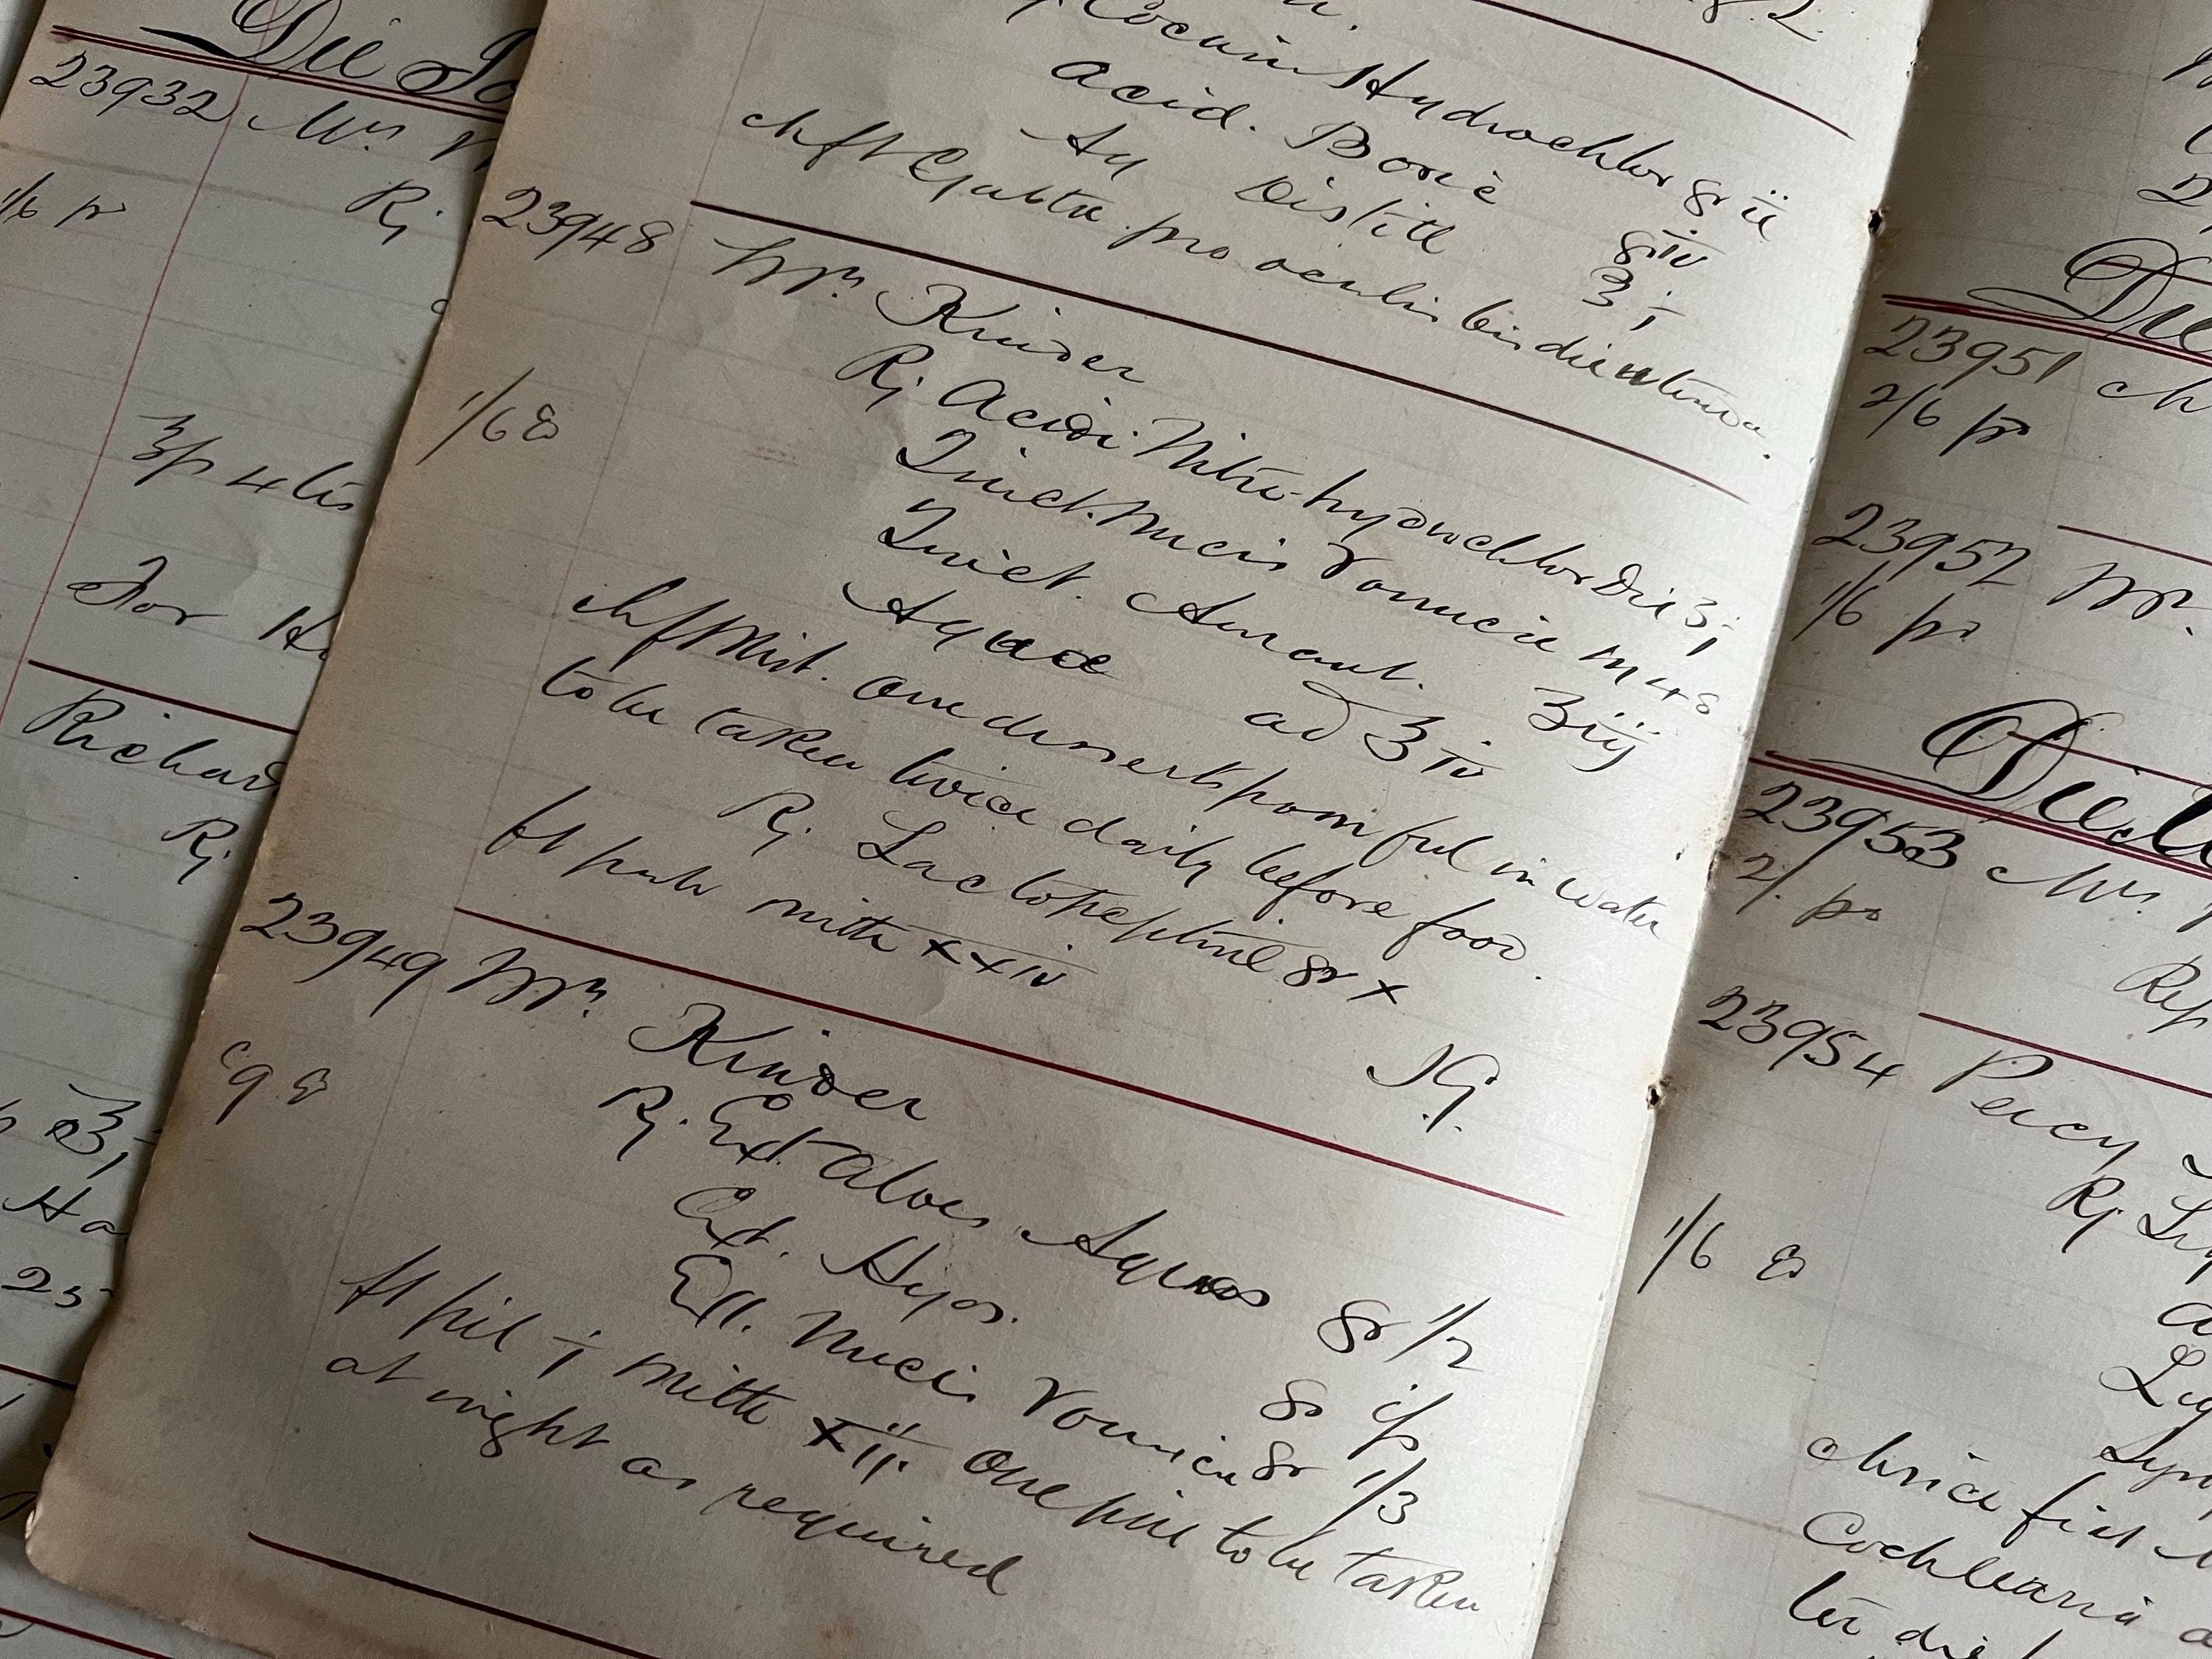 Die
23932 Mrs.
1/6 pr
R;
3p 4tis
For
Richard
R;
Ha
25
Cocain Hydrochlor gr ii
Acid. Boric gr iv
Aq Distill ℥ i
M ft Gutta pro oculis bis die utenda.
23948 Mrs. Kinder
1/6
R; Acidi. Nitro-hydrochlor Dil ʒ i
Tinct. Nucis Vomicæ m 48
Tinct. Aurant. ʒ iij
Aquae ad ℥ iv
M ft Mist. One dessertspoonful in water
to be taken twice daily before food.
R; Lactopeptine gr x
ft pulv mitte xxiv
23949 Mrs. Kinder
R. Ext Aloes Aquos gr 1/2
Ext. Hyos. gr
Ext. Nucis Vomicæ gr 1/3
ft pil i mitte xii. One pill to be taken
at night as required
Die
23951
2/6 pr
23952 Mr.
1/6 pr
Die
23953 Mrs.
2/. pr
Rep
23954 Percy
R;
1/6
Liq
fiat
Cochlearia
ter die